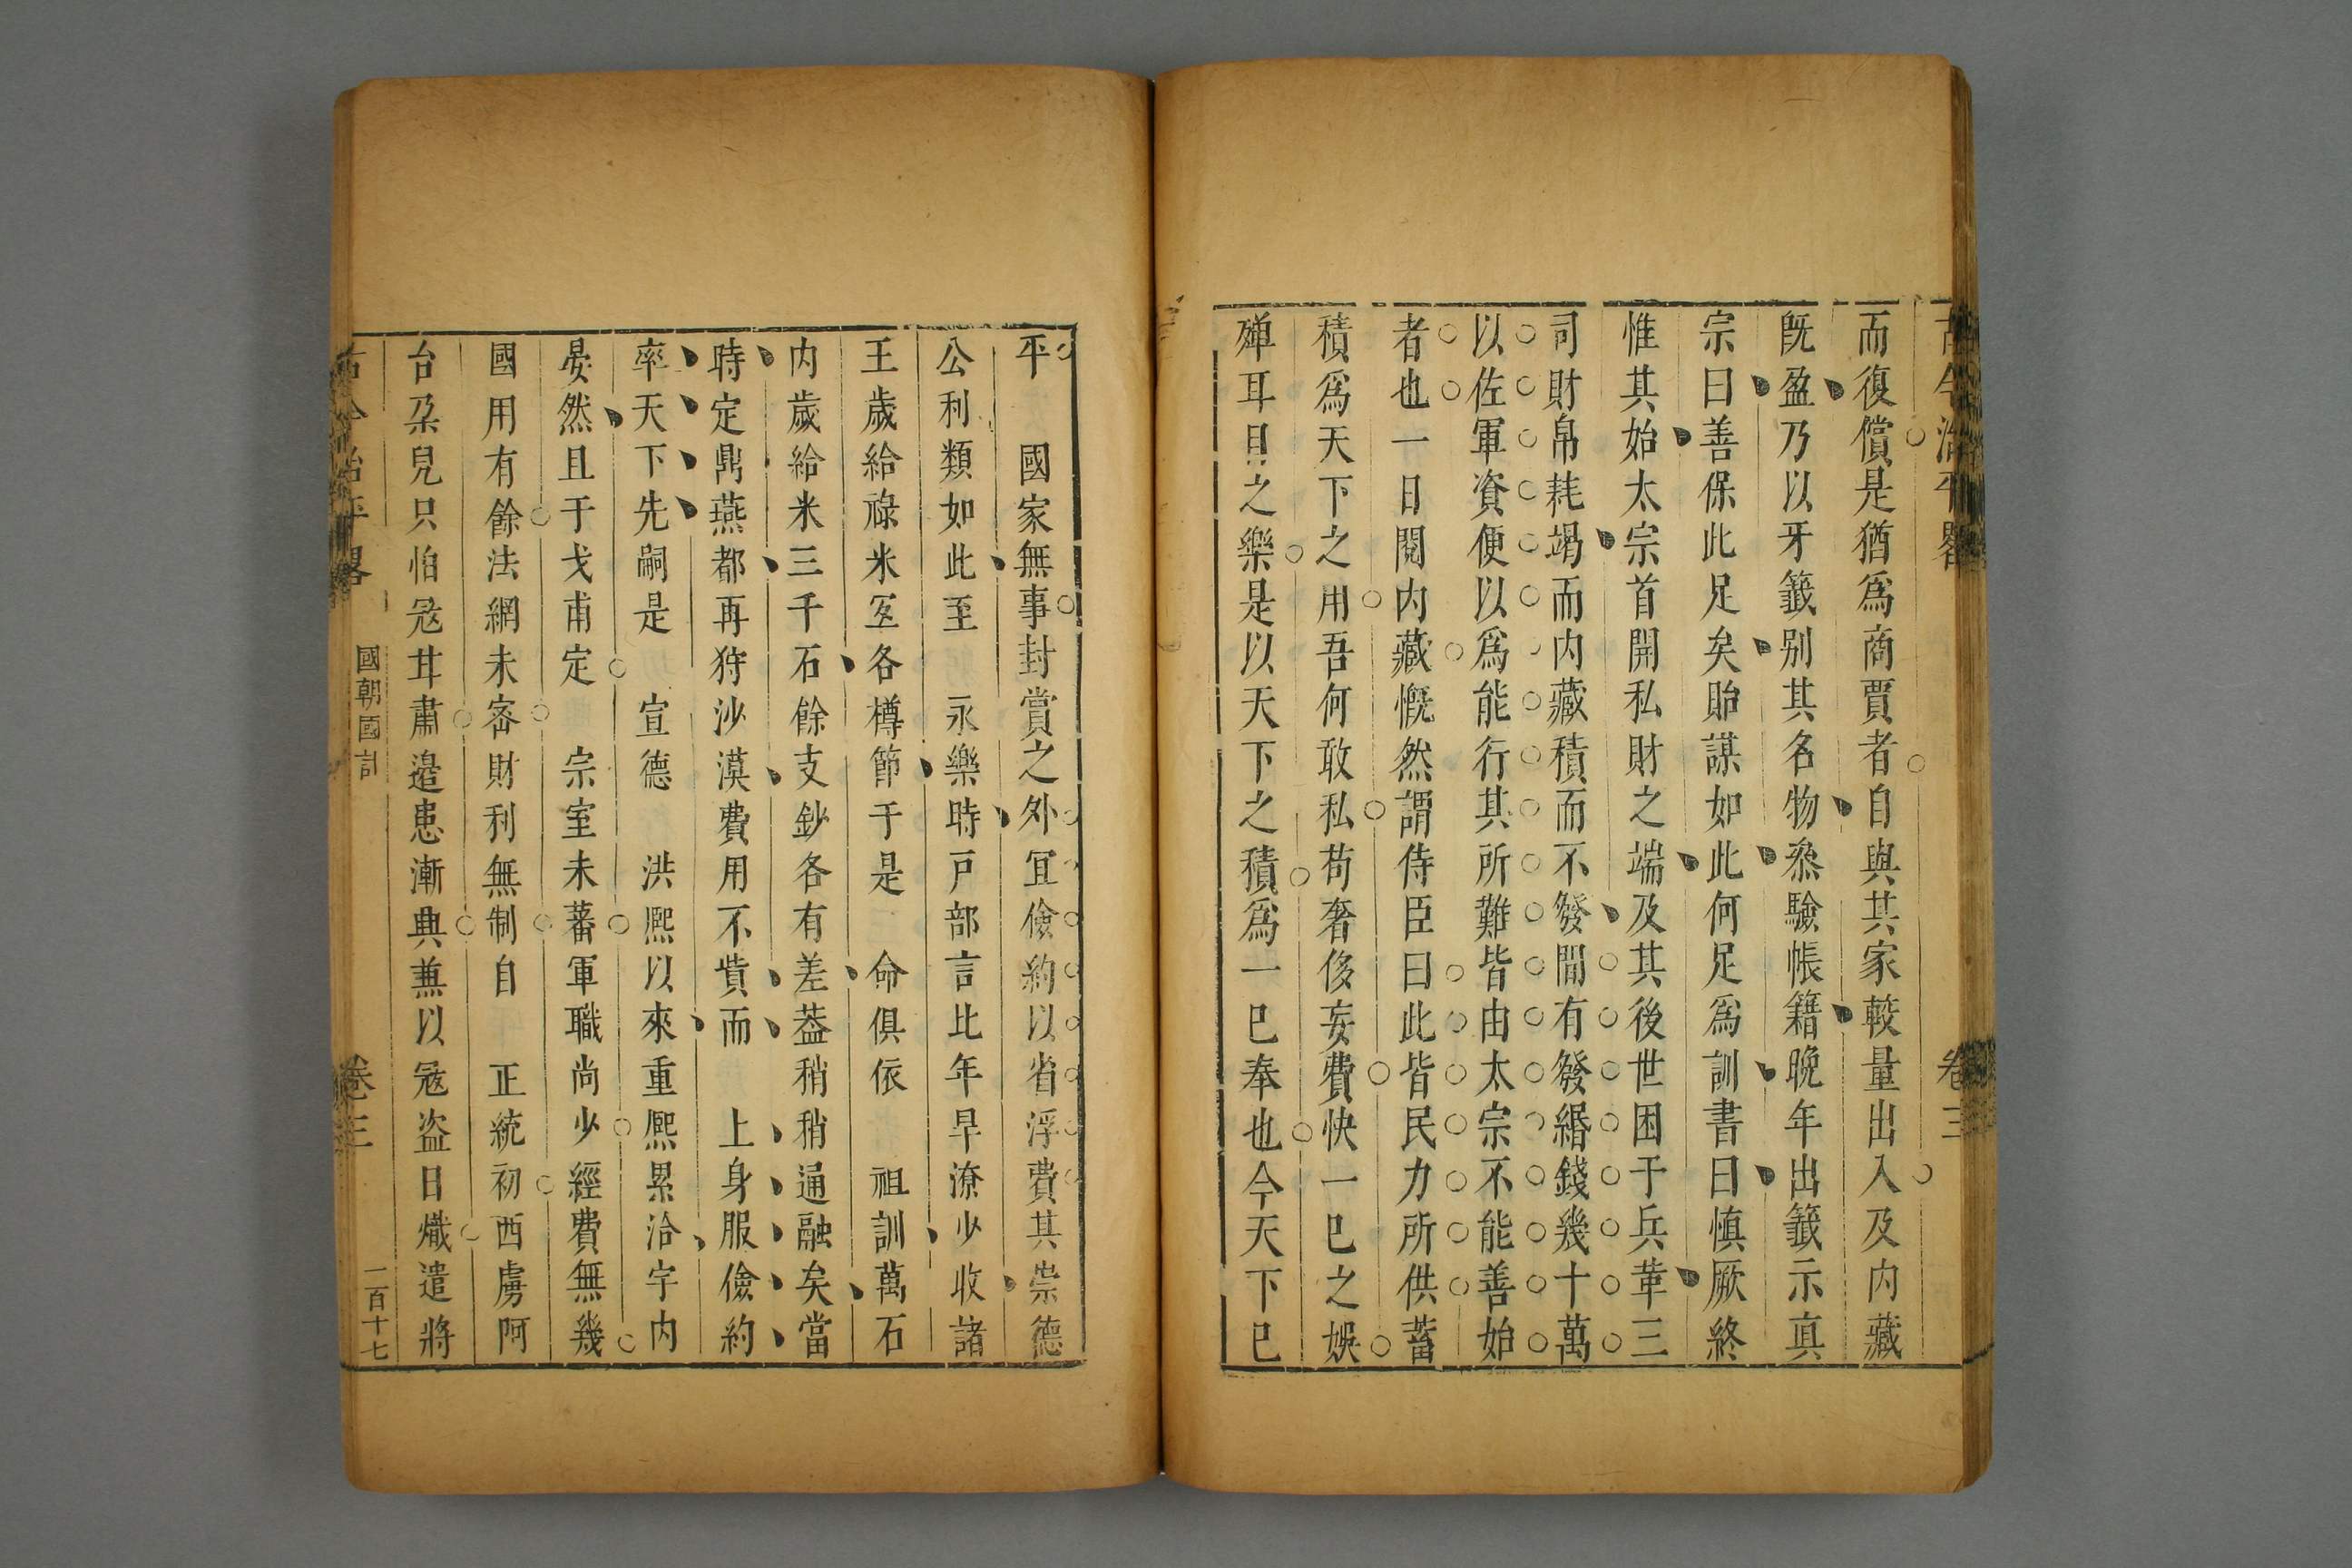 古今治平畧 卷三
而復償是猶爲商賈者自與其家較量出入及内藏
旣盈乃以牙籤别其名物叅驗帳籍晚年出籤示真
宗曰善保此足矣貽謀如此何足爲訓書曰慎厥終
惟其始太宗首開私財之端及其後世困于兵革三
司財帛耗竭而内藏積而不發間有發緡錢幾十萬
以佐軍資便以爲能行其所難皆由太宗不能善始
者也一日閱内藏慨然謂侍臣曰此皆民力所供蓄
積爲天下之用吾何敢私苟奢侈妄費快一巳之娛
殫耳目之樂是以天下之積爲一巳奉也今天下巳
平 國家無事封賞之外冝儉約以省浮費其崇德
公利類如此至 永樂時戸部言比年旱潦少收諸
王歲給祿米冝各樽節于是 命俱依 祖訓萬石
内歲給米三千石餘支鈔各有差葢稍稍通融矣當
時定鼎燕都再狩沙漠費用不貲而 上身服儉約
率天下先嗣是 宣德 洪熈以來重熈累洽宇内
晏然且于戈甫定 宗室未蕃軍職尚少經費無幾
國用有餘法網未宻財利無制自 正統初西虜阿
台朶兒只怕冦甘肅邉患漸典蕪以冦盗日熾遣將
古今治平畧 國朝國計 卷三 二百十七